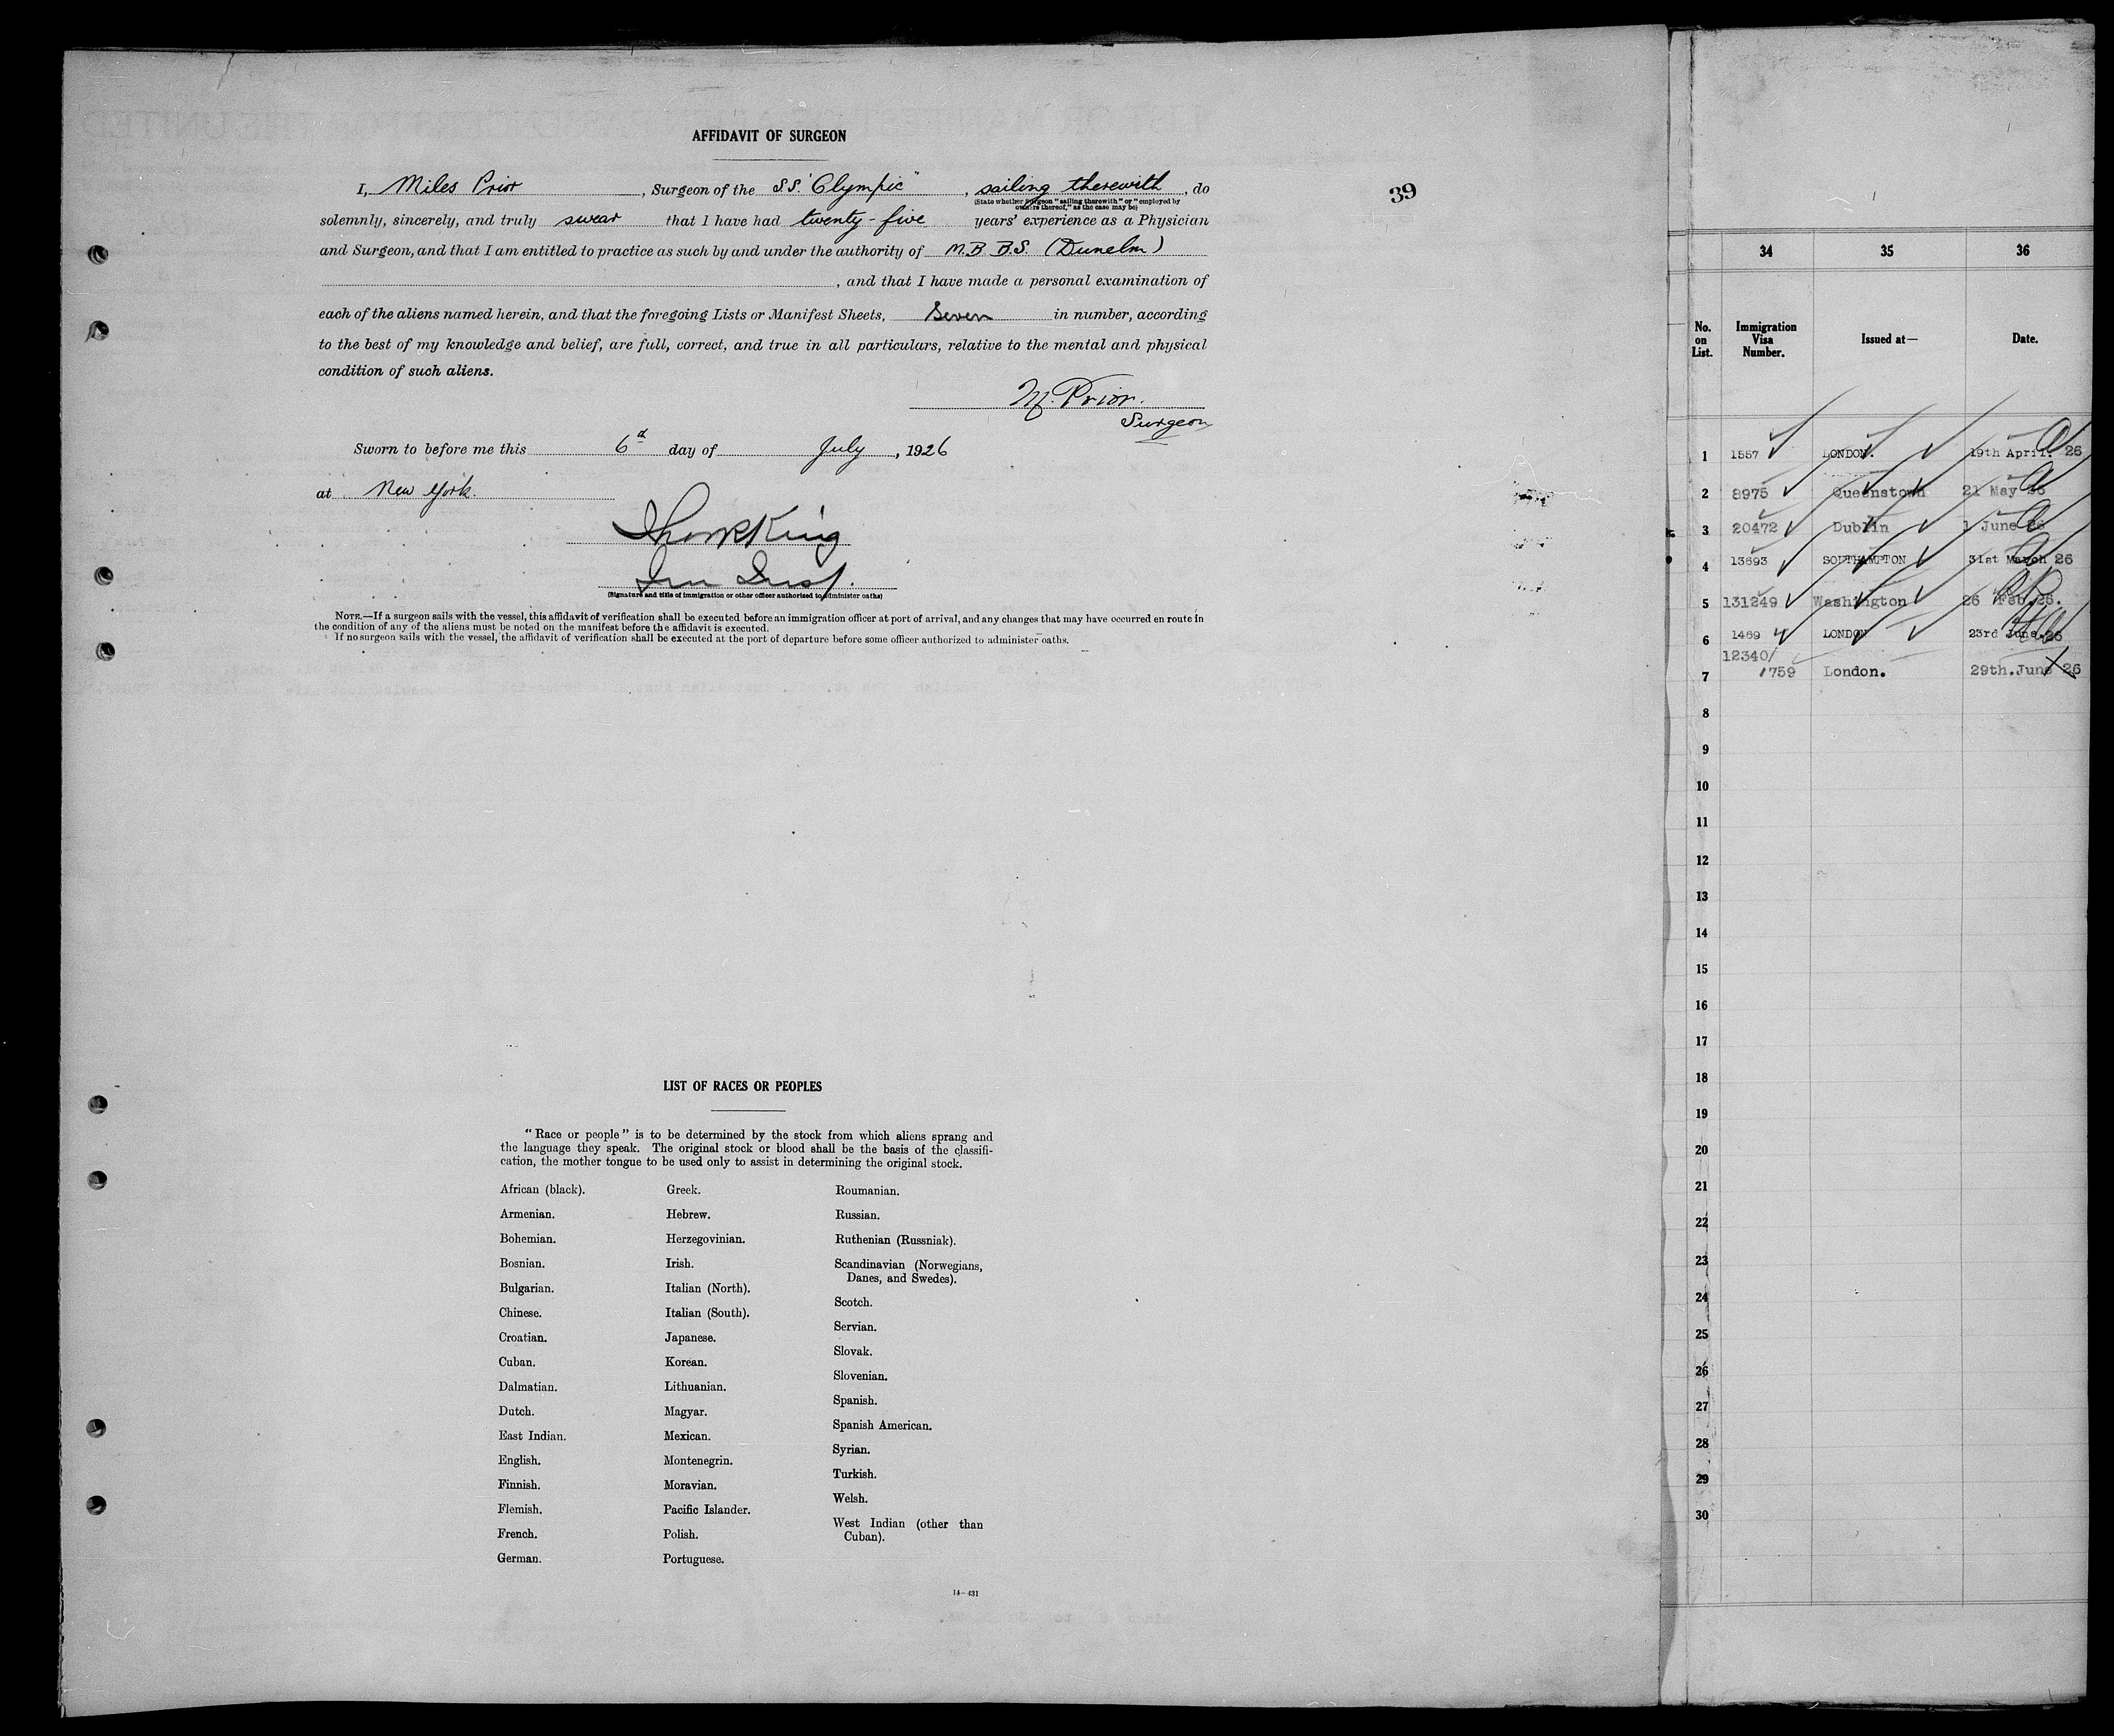 AFFIDAVIT OF SURGEON
39
I, Miles Prior, Surgeon of the S.S. "Olympic", sailing therewith, do
(State whether surgeon "sailing therewith" or "employed by
owners thereof," as the case may be)
solemnly, sincerely, and truly swear that I have had twenty-five years' experience as a Physician
and Surgeon, and that I am entitled to practice as such by and under the authority of M.B B.S. (Dunelm)
, and that I have made a personal examination of
each of the aliens named herein, and that the foregoing Lists or Manifest Sheets, Seven in number, according
to the best of my knowledge and belief, are full, correct, and true in all particulars, relative to the mental and physical
condition of such aliens.
M. Prior.
Surgeon
Sworn to before me this 6th day of July, 1926
at New York.
King
(Signature and title of immigration or other officer authorized to administer oaths)
NOTE.—If a surgeon sails with the vessel, this affidavit of verification shall be executed before an immigration officer at port of arrival, and any changes that may have occurred en route in
the condition of any of the aliens must be noted on the manifest before the affidavit is executed.
If no surgeon sails with the vessel, the affidavit of verification shall be executed at the port of departure before some officer authorized to administer oaths.
LIST OF RACES OR PEOPLES
"Race or people" is to be determined by the stock from which aliens sprang and
the language they speak. The original stock or blood shall be the basis of the classifi-
cation, the mother tongue to be used only to assist in determining the original stock.
African (black).
Armenian.
Bohemian.
Bosnian.
Bulgarian.
Chinese.
Croatian.
Cuban.
Dalmatian.
Dutch.
East Indian.
English.
Finnish.
Flemish.
French.
German.
Greek.
Hebrew.
Herzegovinian.
Irish.
Italian (North).
Italian (South).
Japanese.
Korean.
Lithuanian.
Magyar.
Mexican.
Montenegrin.
Moravian.
Pacific Islander.
Polish.
Portuguese.
Roumanian.
Russian.
Ruthenian (Russniak).
Scandinavian (Norwegians,
Danes, and Swedes).
Scotch.
Servian.
Slovak.
Slovenian.
Spanish.
Spanish American.
Syrian.
Turkish.
Welsh.
West Indian (other than
Cuban).
14—431
34 35 36
No. on List. Immigration Visa Number. Issued at— Date.
1 1557 LONDON. 19th April. 26
2 8975 Queenstown 21 May 26
3 20472 Dublin 1 June 26
4 13693 SOUTHAMPTON 31st March 26
5 131249 Washington 26 Feb. 26.
6 1469 LONDON 23rd June. 26
12340/
7 759 London. 29th. June 26
8
9
10
11
12
13
14
15
16
17
18
19
20
21
22
23
24
25
26
27
28
29
30